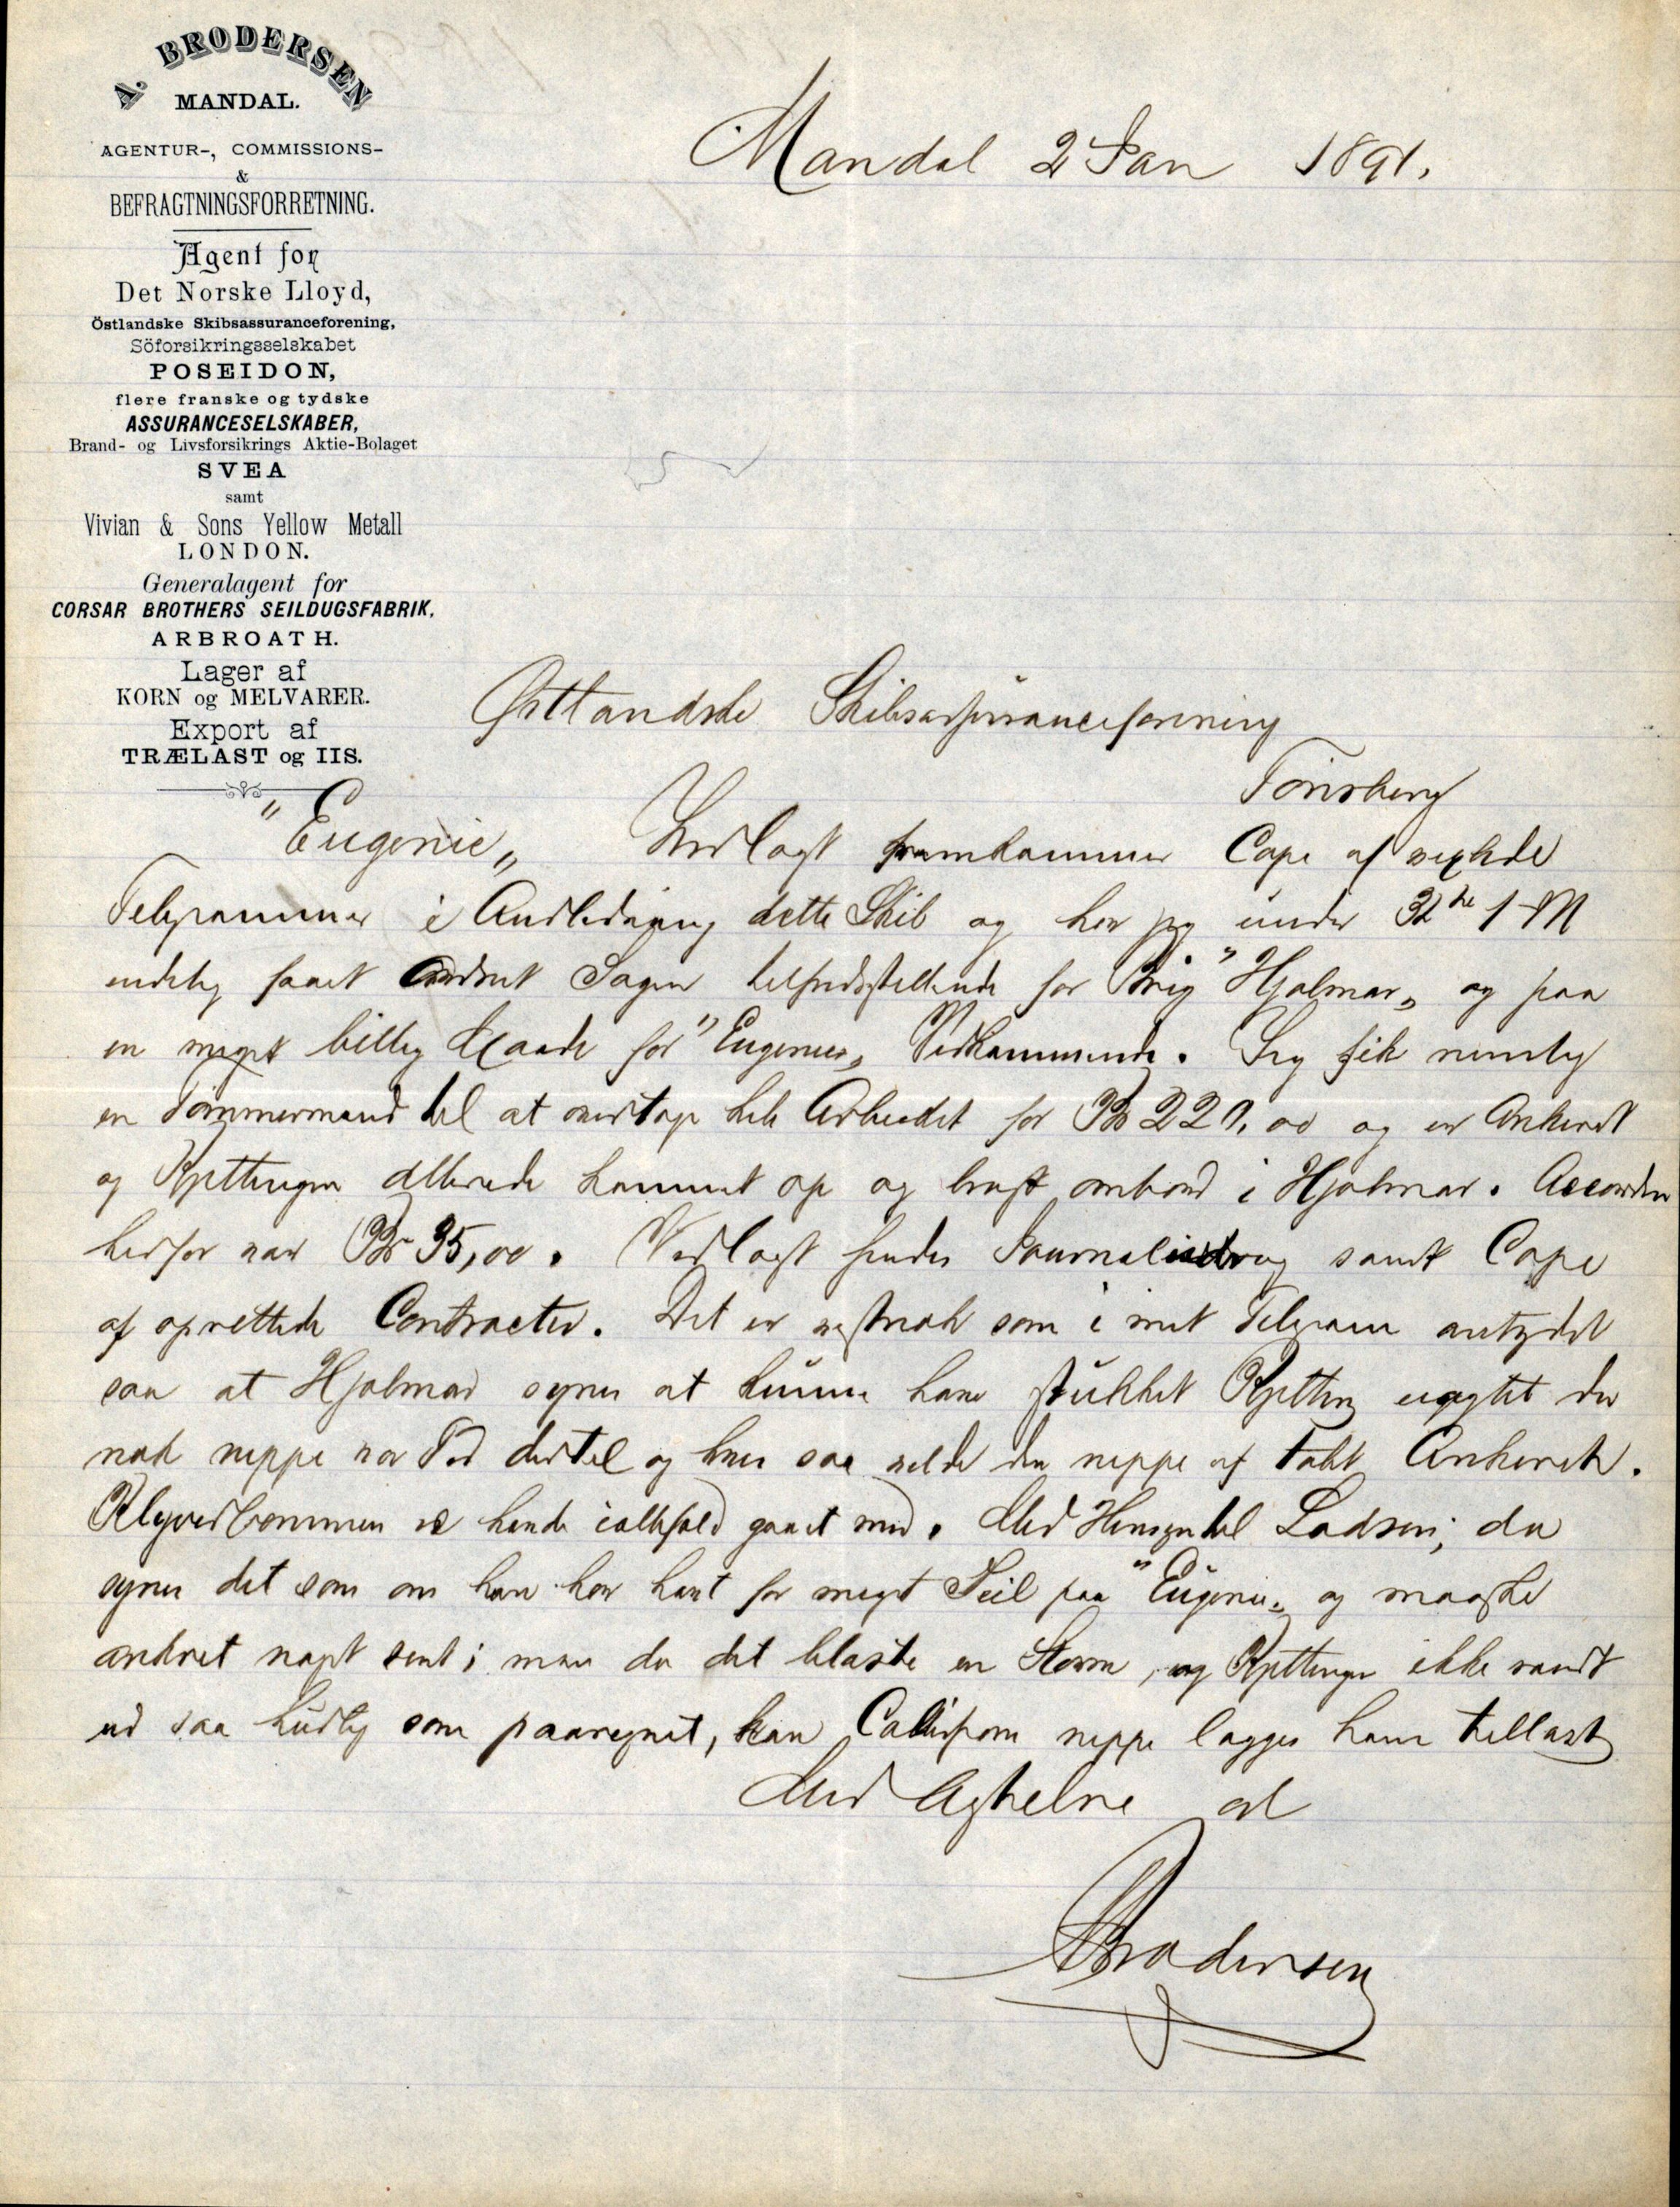 A. BRODERSEN
MANDAL.
AGENTUR-, COMMISSIONS-
&
BEFRAGTNINGSFORRETNING.
Agent for
Det Norske Lloyd,
Östlandske Skibsassuranceforening,
Söforsikringsselskabet
POSEIDON,
flere franske og tydske
ASSURANCESELSKABER,
Brand- og Livsforsikrings Aktie-Bolaget
SVEA
samt
Vivian & Sons Yellow Metall
LONDON.
Generalagent for
CORSAR BROTHERS SEILDUGSFABRIK.
ARBROATH.
Lager af
KORN og MELVARER.
Export af
TRÆLAST og IIS.
Mandal 2 Jan 1891.
Østlandske Skibsassuranceforening
Tönsberg
"Eugenie" Indlagt fremkommer Copi af vexlede
Telegrammer i Anledning dette Skib og har jeg under
endelig faaet ordnet Sagen tilfredsstillende for Brig "Hjalmar" og paa
en meget billig Maade for "Eugenies" Vedkommende. Jeg fik nemlig
en Tömmermand til at overtage hele Arbeidet for og er Ankeret
og Kjettingen allerede kommet op og bragt ombord i Hjalmar. Accorden
herfor var Kr 35,00. Vedlagt sendes Journaludtrog samt Copi
af oprettede Contracter. Det er nok som i mit Telegram antydet
saa at Hjalmar synes at kunne have stukket Kjetting uagtet der
nok neppe var Tid dertil og hver saa vilde den neppe af Ankeret.
Klyverbommen kunde ialfald gaaet med. Med Hensyn til Lodsen, da
synes det som om han har havt for meget Seil paa "Eugenie" og maaske
ankret noget sent; men da det blæste en Storm, og Kjettingen ikke randt
ud saa hurtig som paaregnet, kan neppe lægges ham tillast
Med Agtelse
ABrodersen